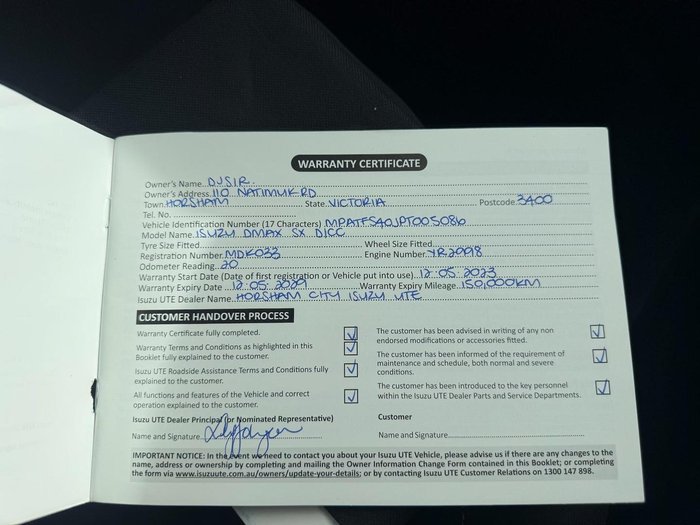 WARRANTY CERTIFICATE
Owner's Name DJSIR
Owner's Address 110 NATIMUK RD
Town HORSHAM State VICTORIA Postcode 3400
Tel. No.
Vehicle Identification Number (17 Characters) MPATFS40JPT005086
Model Name ISUZU DMAX SX D/CC
Tyre Size Fitted Wheel Size Fitted
Registration Number MDK033 Engine Number YR2998
Odometer Reading 20
Warranty Start Date (Date of first registration or Vehicle put into use) 12.05.2023
Warranty Expiry Date 12.05.2029 Warranty Expiry Mileage 150,000KM
Isuzu UTE Dealer Name HORSHAM CITY ISUZU UTE
CUSTOMER HANDOVER PROCESS
Warranty Certificate fully completed.
Warranty Terms and Conditions as highlighted in this
Booklet fully explained to the customer.
Isuzu UTE Roadside Assistance Terms and Conditions fully
explained to the customer.
All functions and features of the Vehicle and correct
operation explained to the customer.
The customer has been advised in writing of any non
endorsed modifications or accessories fitted.
The customer has been informed of the requirement of
maintenance and schedule, both normal and severe
conditions.
The customer has been introduced to the key personnel
within the Isuzu UTE Dealer Parts and Service Departments.
Isuzu UTE Dealer Principal (or Nominated Representative)
Name and Signature
Customer
Name and Signature
IMPORTANT NOTICE: In the event we need to contact you about your Isuzu UTE Vehicle, please advise us if there are any changes to the
name, address or ownership by completing and mailing the Owner Information Change Form contained in this Booklet; or completing
the form via www.isuzuute.com.au/owners/update-your-details; or by contacting Isuzu UTE Customer Relations on 1300 147 898.